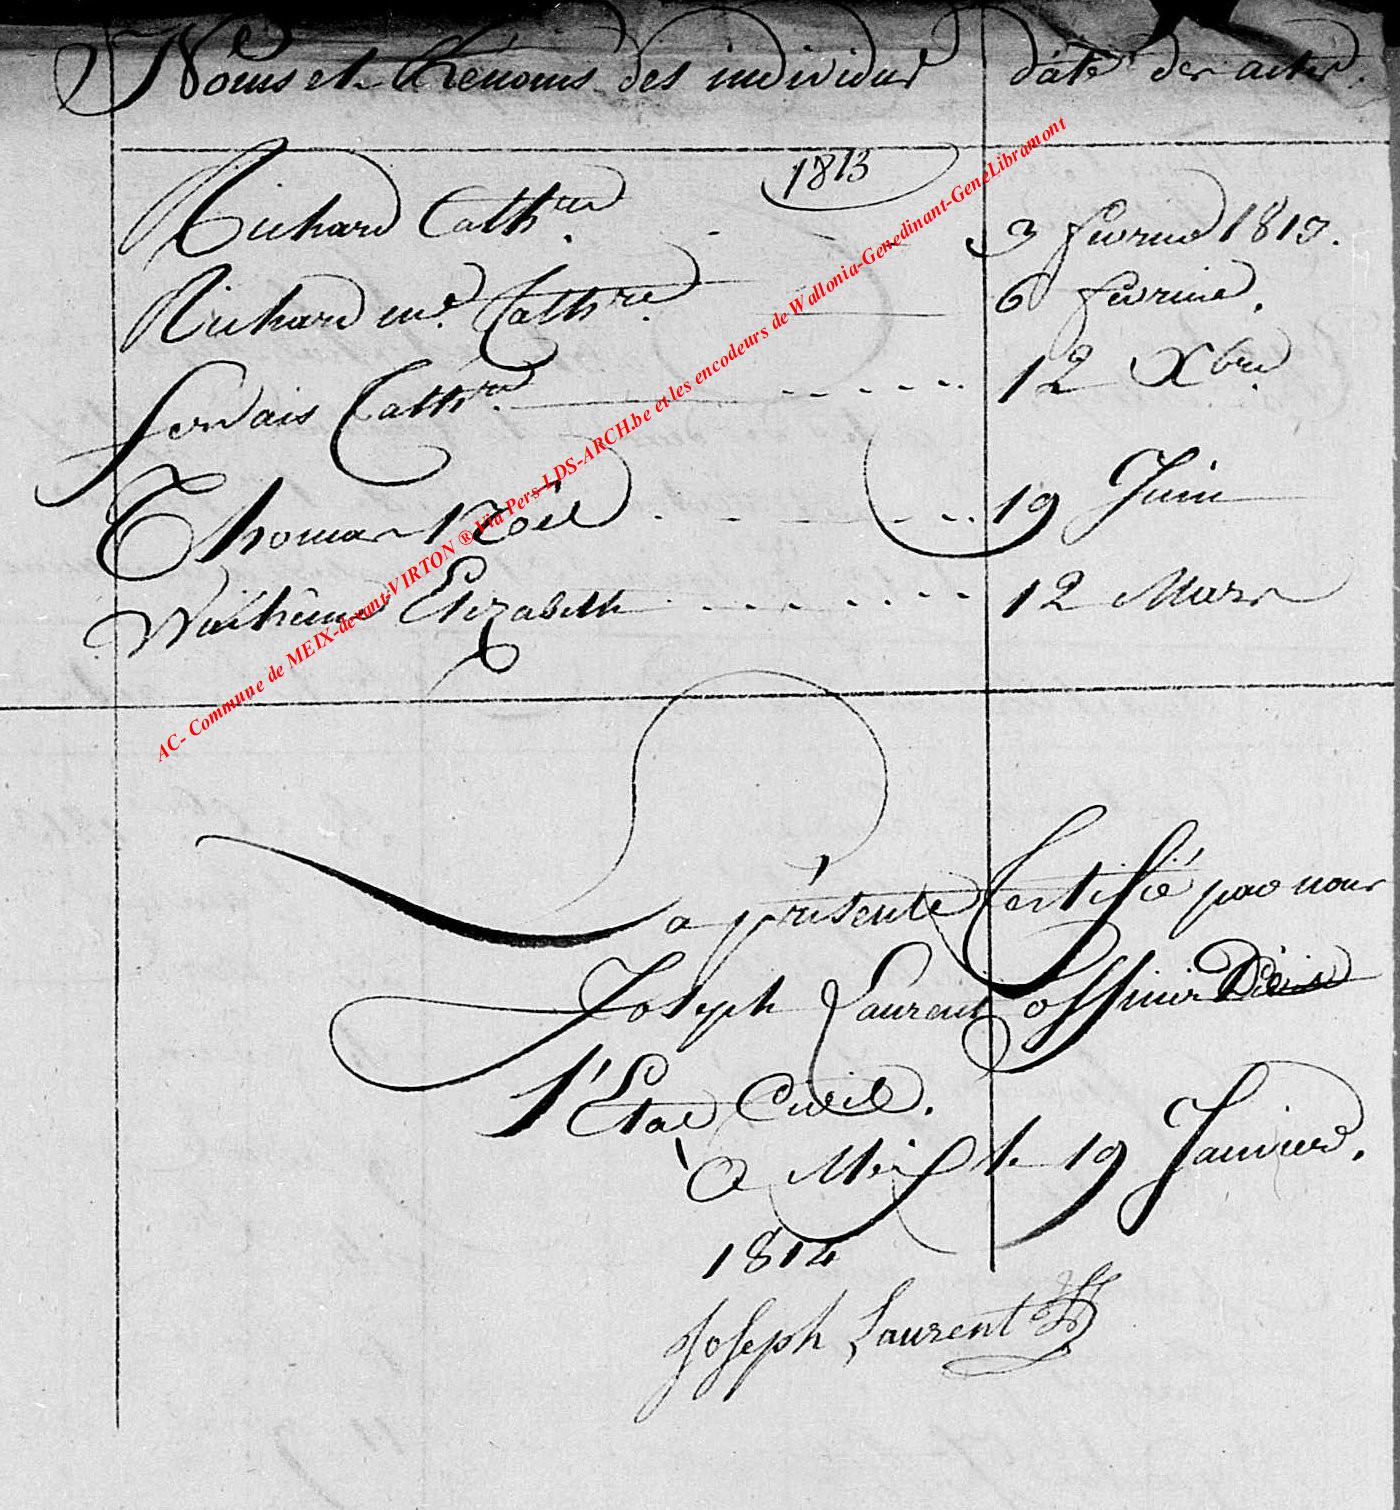 Noms et Prénoms des individus date des actes.
1813
Richard Cath.re 3 fevrier 1813.
Richard m.e Cath.re 6 fevrier.
Servais Cath.re 12 Xbre
Thomas Noël 19 Juin
Wathême Elizabeth 12 Mars
La présente Certifié par nous
Joseph Laurent officier
l'Etat Civil.
à Meix le 19 Janvier.
1814
Joseph Laurent
AC- Commune de MEIX-devant-VIRTON ® Via Pers-LDS-ARCH.be et les encodeurs de Wallonia-Genedinant-GeneLibramont